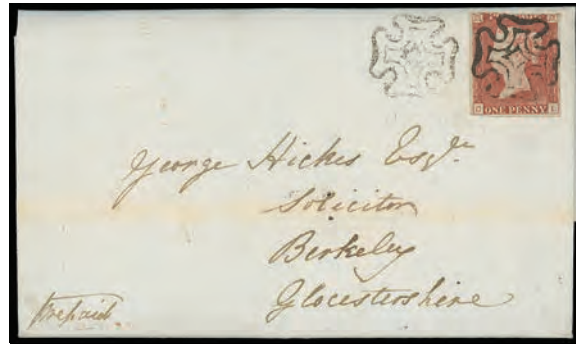 ONE PENNY
George Hickes Esqre
Solicitor
Berkeley
Glocestershire
Prepaid